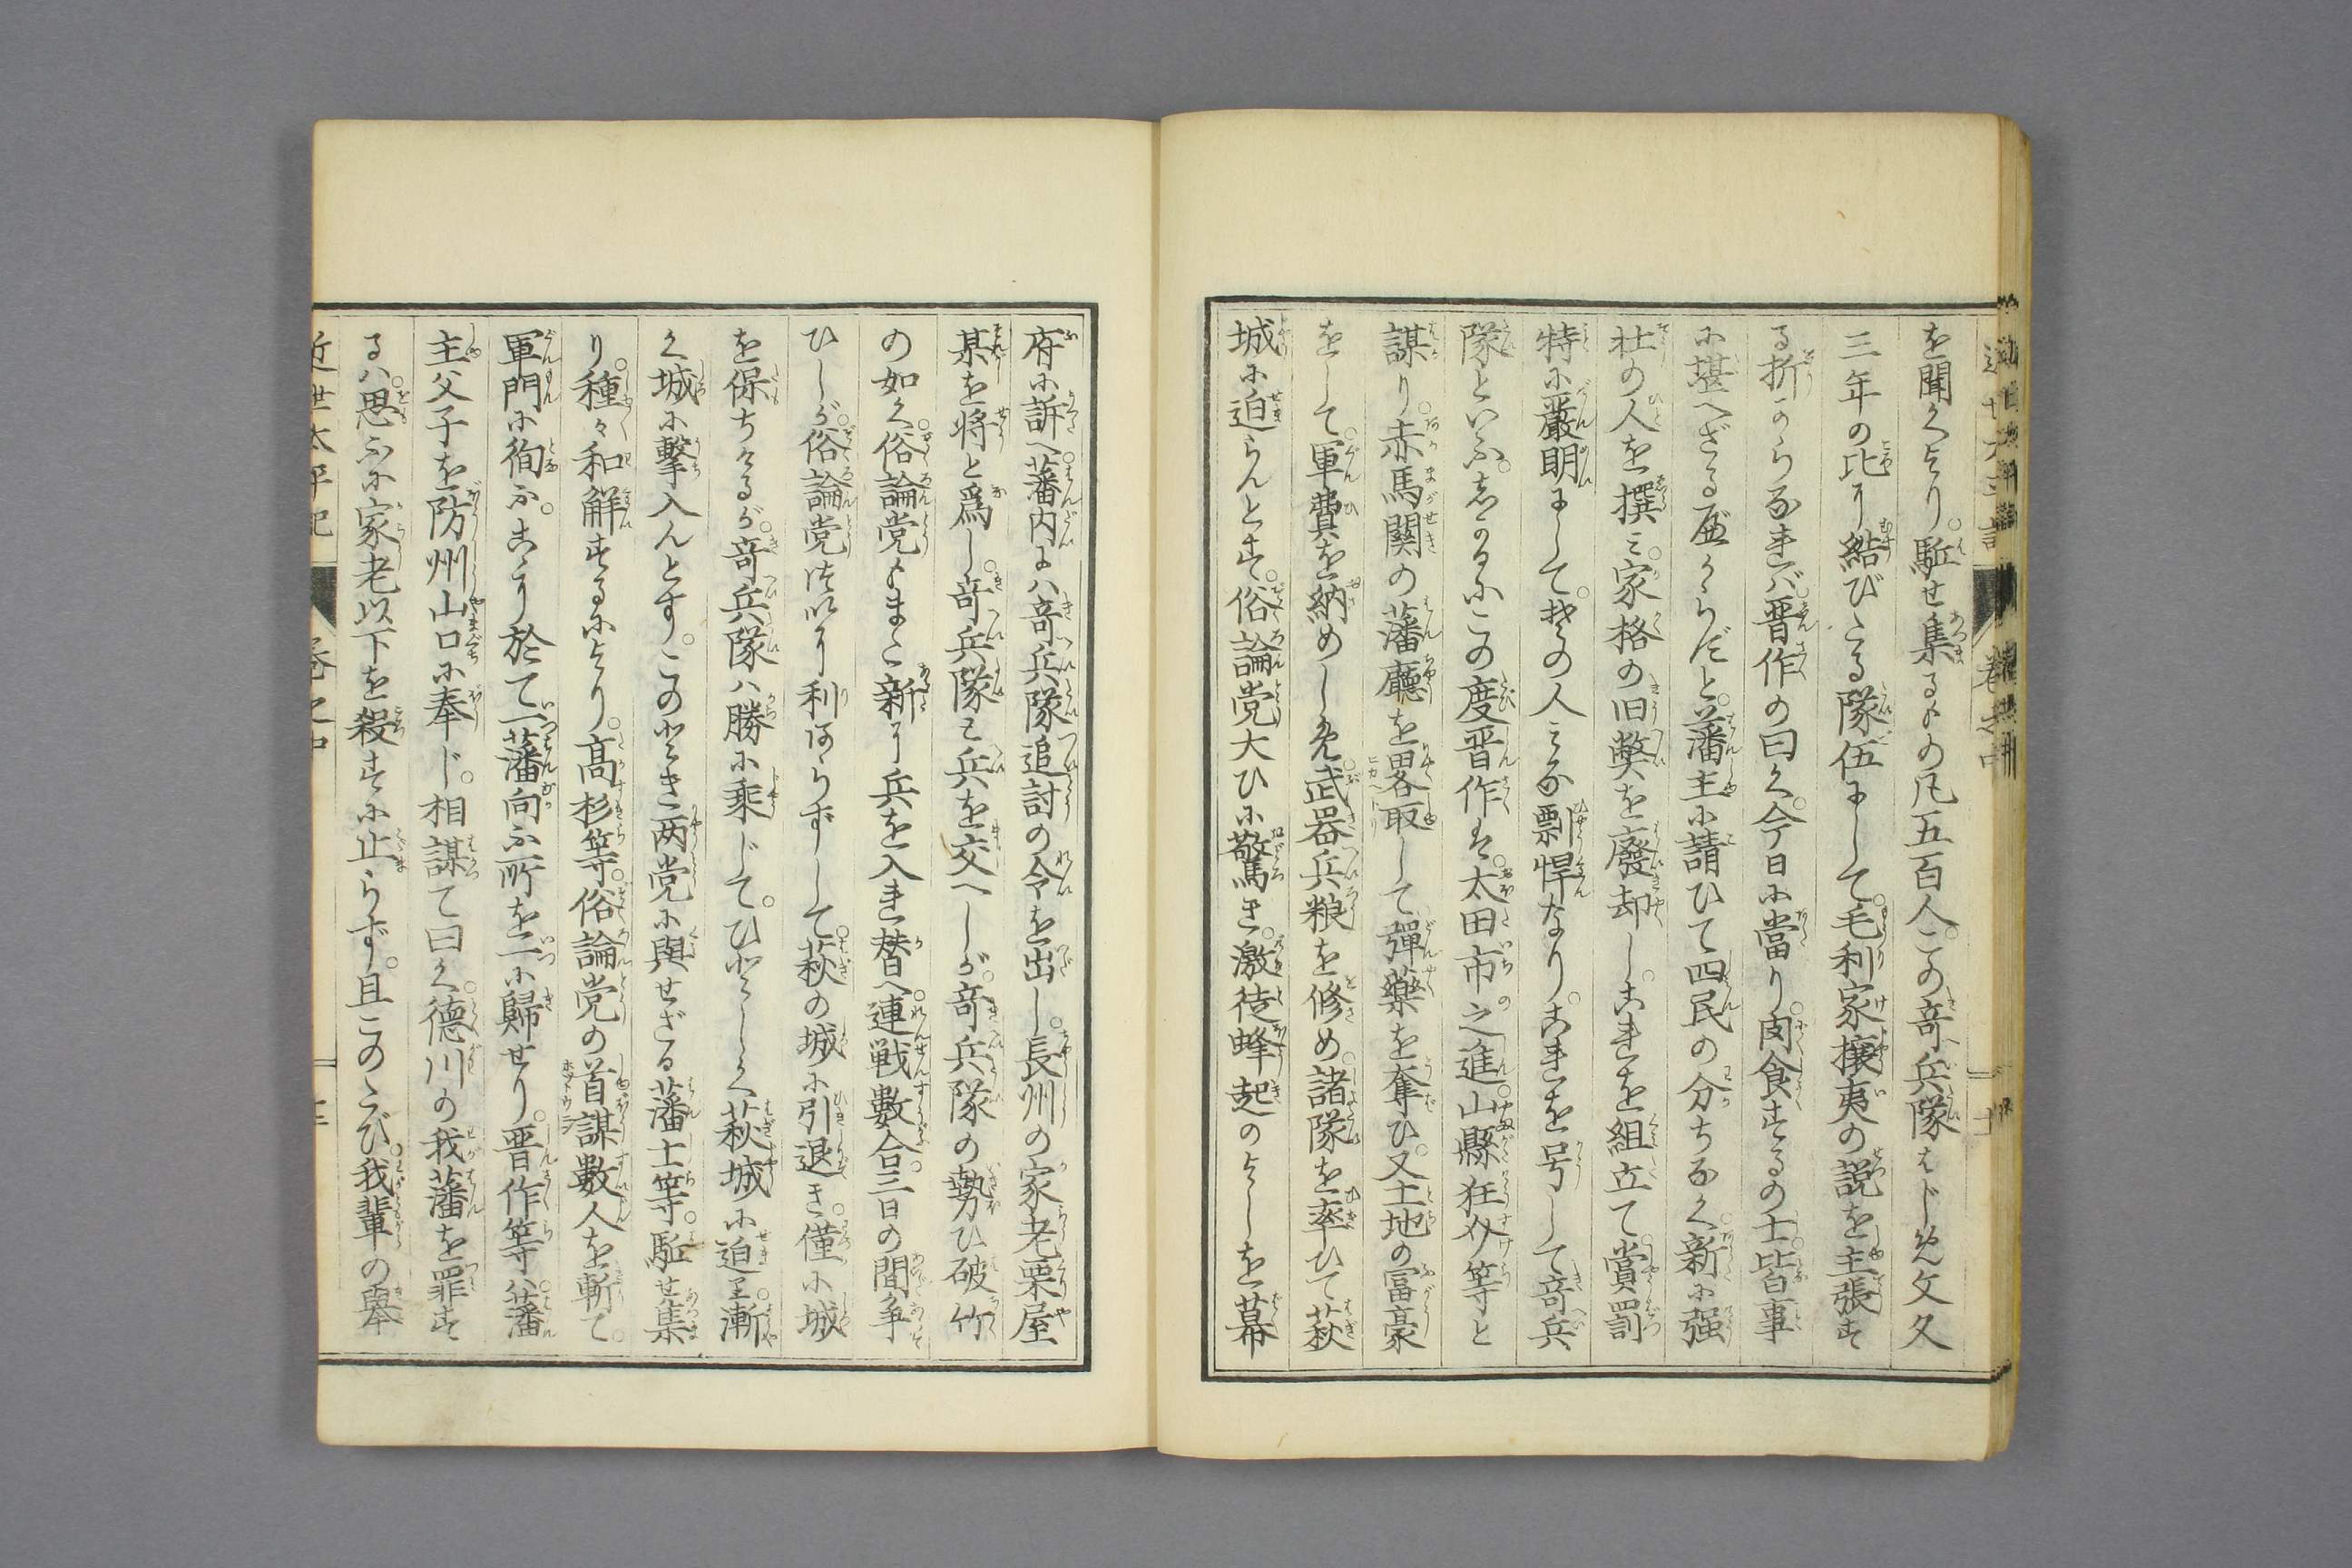 を聞くより。駈せ集るもの凡五百人。この竒兵隊はじめ文久
三年の比より結びたる隊伍にして。毛利家攘夷の説を主張す
る折からなれバ。晋作の曰く。今日に當り。肉食するの士。皆事
に堪へざる歴からだと。藩主に請ひて四民の分ちなく。新に强
壮の人を撰ミ。家格の旧獘を廢却し。これを組立て。賞罰
特に嚴明にして。其の人ミな剽悍なり。これを号して竒兵
隊といふ。しかるにこの度晋作ハ。太田市之進。山縣狂介等と
謀り。赤馬関の藩廳を畧取して彈藥を奪ひ。又土地の冨豪
をして。軍費を納めしめ。武器兵粮を修め。諸隊を率ひて萩
城に迫らんとす。俗論党大ひに驚き。激徒蜂起のよしを幕
府に訴へ。藩内にハ竒兵隊追討の令を出し。長州の家老栗屋
某を将と爲し。竒兵隊と兵を交へしが。竒兵隊の勢ひ破竹
の如く。俗論党もまた新に兵を入れ替へ。連戦數合。三日の間争
ひしが。俗論党つひに利あらずして。萩の城に引退き。僅に城
を保ちけるが。竒兵隊ハ勝に乘じて。ひとしく萩城に迫り。漸
く城に擊入んとす。このとき两党に與せざる藩士等。駈せ集
り。種々和解するにより。髙杉等。俗論党の首謀數人を斬て。
軍門に徇ふ。こゝに於て一藩向ふ所を一に歸せり。晋作等ハ。藩
主父子を防州山口に奉じ。相謀て曰く。德川の我藩を罪す
るハ。思ふに家老以下を殺すに止らず。且このたび。我輩の擧
近世太平記 巻之中